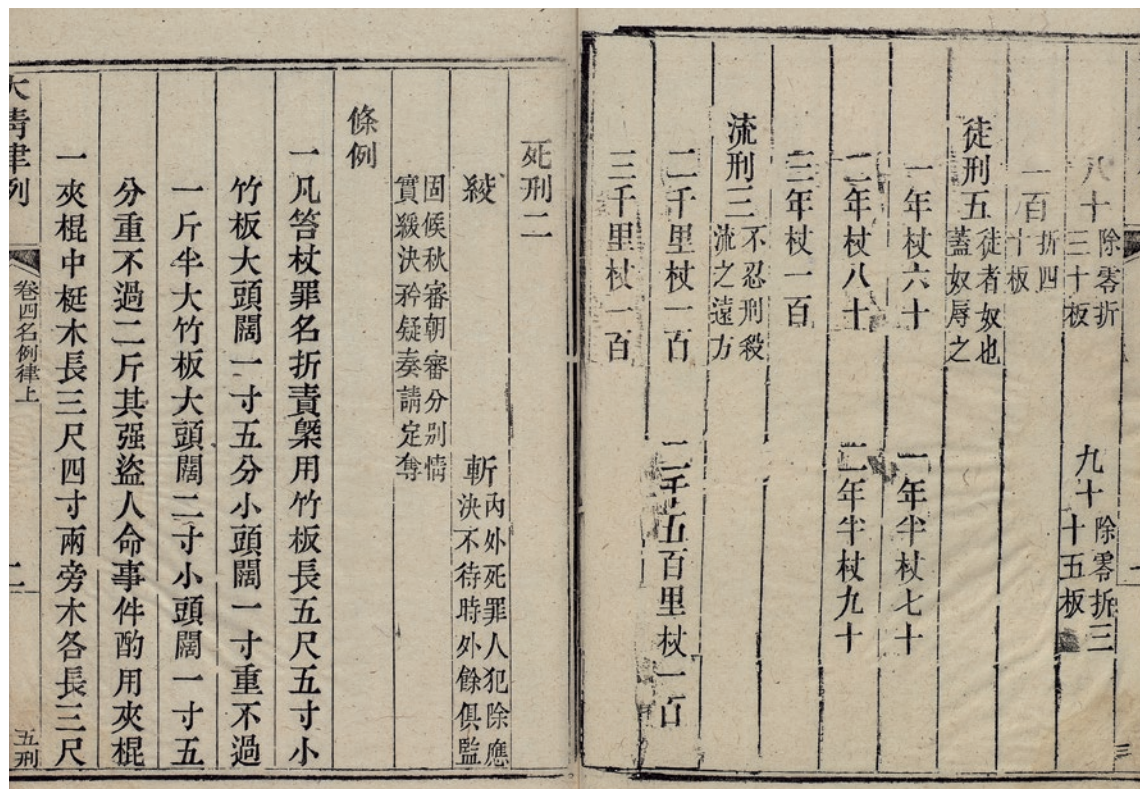 八十 除零折三十板 九十 除零折三十五板
一百 折四十板
徒刑五 徒者奴也蓋奴辱之
一年杖六十 一年半杖七十
二年杖八十 二年半杖九十
三年杖一百
流刑三 不忍刑殺流之遠方
二千里杖一百 二千五百里杖一百
三千里杖一百
死刑二
絞 斬 內外死罪人犯除應決不待時外餘俱監
固候秋審朝審分別情實緩決矜疑奏請定奪
條例
一凡笞杖罪名折責槩用竹板長五尺五寸小
竹板大頭闊一寸五分小頭闊一寸重不過
一斤半大竹板大頭闊二寸小頭闊一寸五
分重不過二斤其强盜人命事件酌用夾棍
一夾棍中梃木長三尺四寸兩旁木各長三尺
大清律例 卷四名例律上 二 五刑